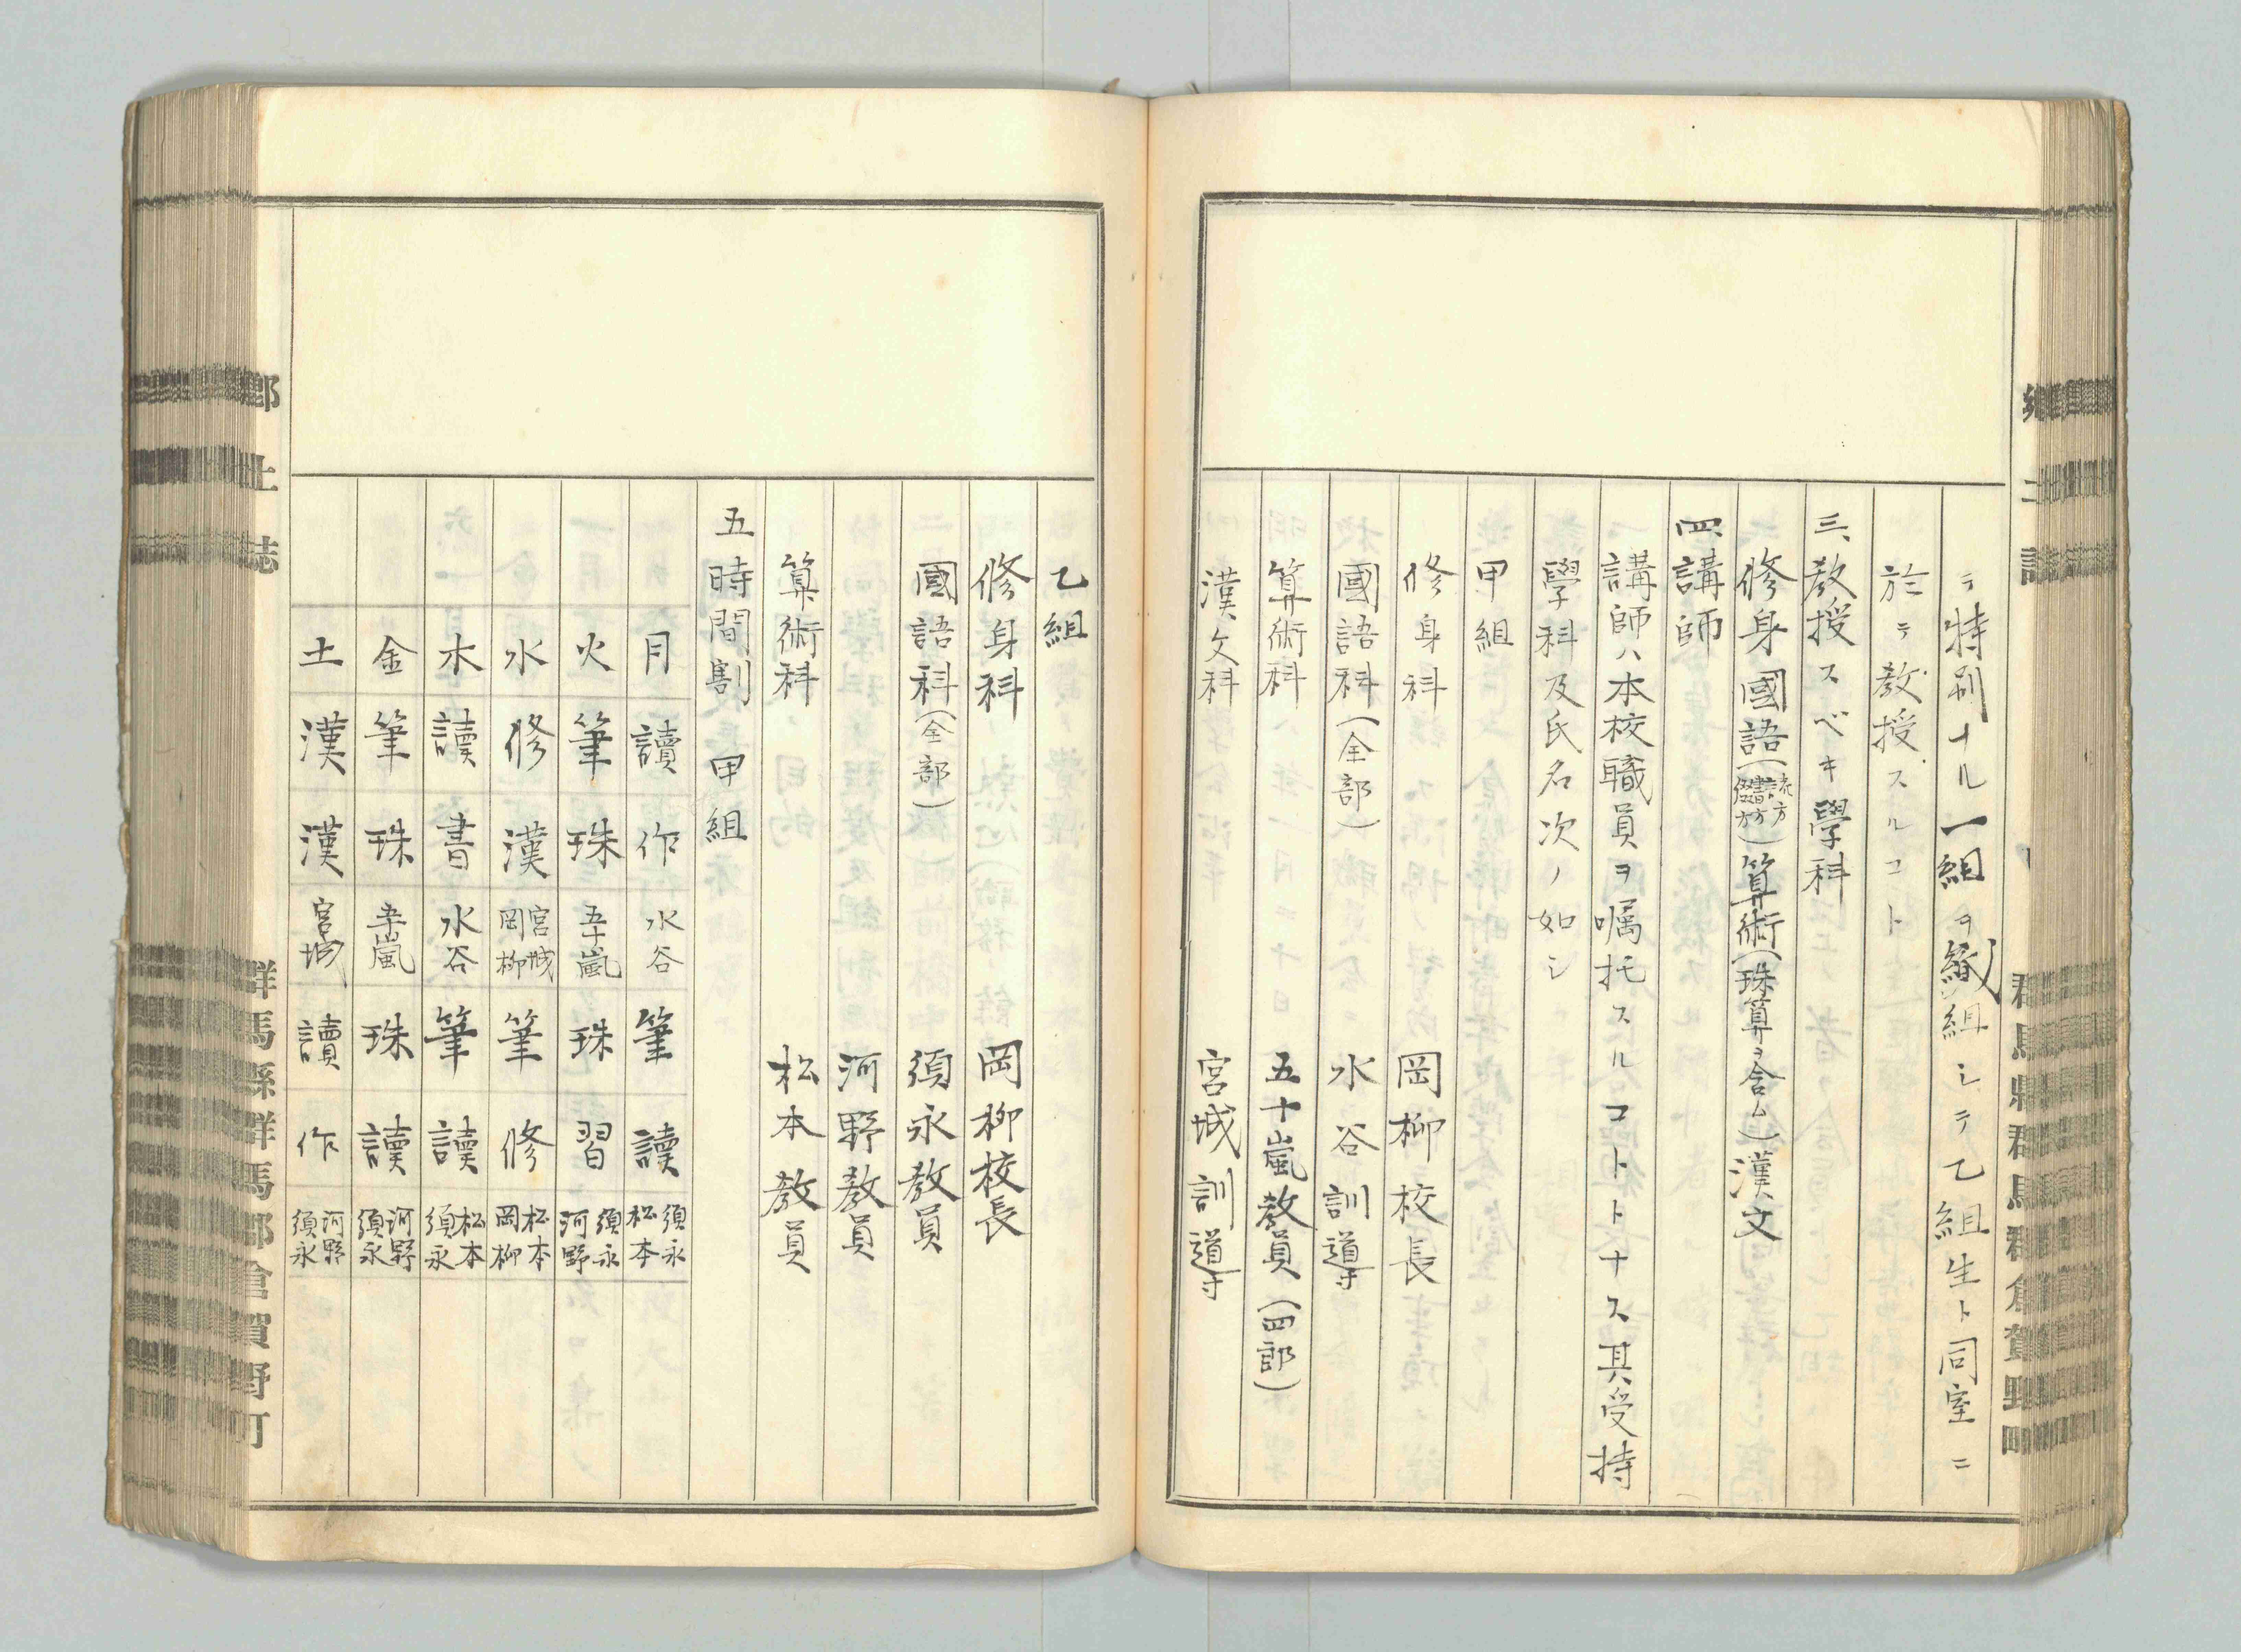 テ特別ナル一組ヲ織組シテ乙組生ト同室ニ
於テ教授スルコト
三、教授スベキ學科
修身國語(讀方書方綴方)算術(珠算ヲ含ム)漢文
四、講師
講師ハ本校職員ヲ嘱托スルコトトナス其受持
學科及氏名次ノ如シ
甲組
修身科 岡柳校長
國語科(全部) 水谷訓導
算術科 五十嵐教員(四郎)
漢文科 宮城訓導
乙組
修身科 岡柳校長
國語科(全部) 須永教員
河野教員
算術科 松本教員
五時間割 甲組
月 讀 作 水谷 筆 讀 須永 松本
火 筆 珠 五十嵐 珠 習 須永 河野
水 修 漢 宮城 岡柳 筆 修 松本 岡柳
木 讀 書 水谷 筆 讀 松本 須永
金 筆 珠 五十嵐 珠 讀 河野 須永
土 漢 漢 宮城 讀 作 河野 須永
郷土誌
群馬縣群馬郡倉賀野町